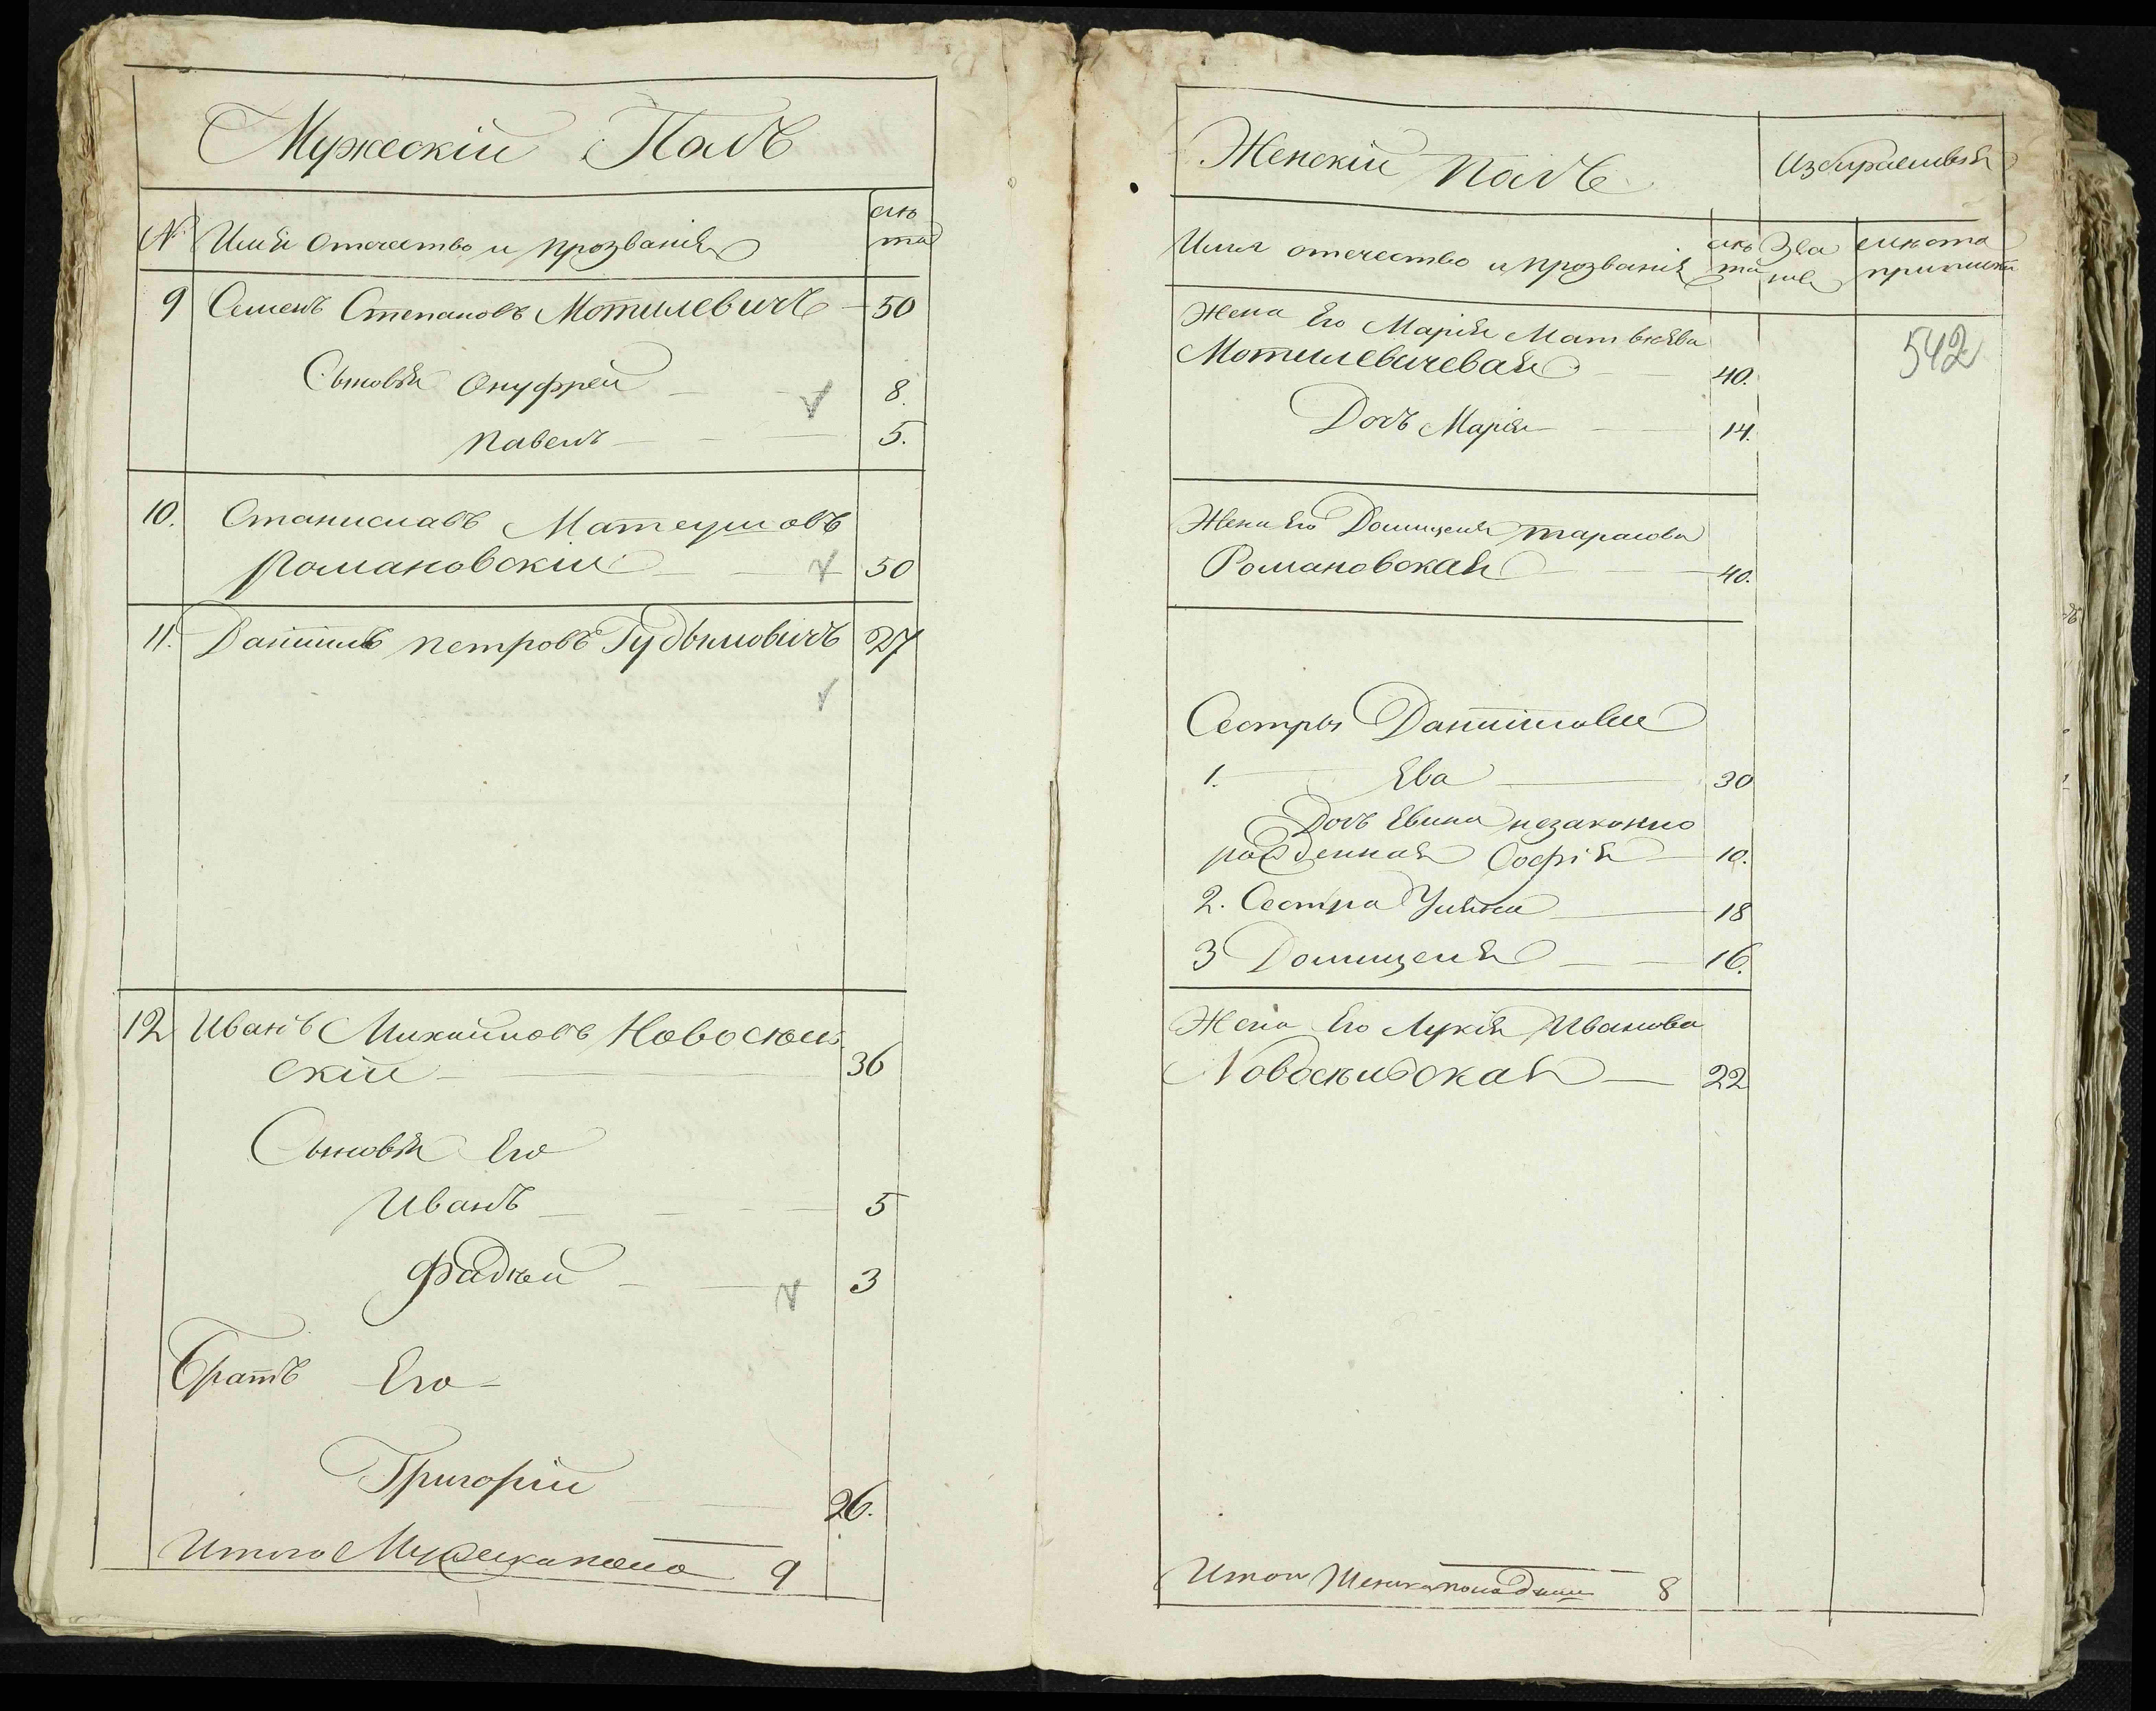 Мужескій Полъ
№ Имя отечество и прозванія лѣ
та
9 Семенъ Степановъ Мотилевичъ 50
Сыновья Онуфрей 8.
Павелъ 5.
10. Станиславъ Матеушовъ
Романовскій 50
11. Даніилъ Петровъ Гудымовичъ 27
12 Иванъ Михайловъ Новосѣль
скій 36
Сыновья Его
Иванъ 5
Фадѣй 3
Братъ Его
Григорій 26.
Итого Мужеска пола 9
Женскій Полъ
Избираемыя
Имя отечество и прозванія лѣ Зва лѣкота
та ніе приписки
Жена Его Марія Матвѣева
Мотилевичевая 40.
542
Дочь Марія 14.
Жена Его Домицеля Тарасова
Романовская 40.
Сестры Данииловы
1. Ева 30
Дочь Евина незаконно
рожденная Софія 10.
2. Сестра Уляна 18
3 Домицеля 16.
Жена Его Лукія Иванова
Новосѣльская 22
Итого Женска пола душъ 8